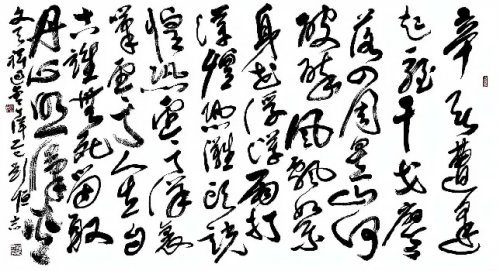 辛苦遭逢
起一經干戈寥
落四周星山河
破碎風飄絮
身世浮沉雨打
萍惶恐灘頭說
惶恐零丁洋裏
嘆零丁人生自
古誰無死留取
丹心照汗青
文天祥過零丁洋